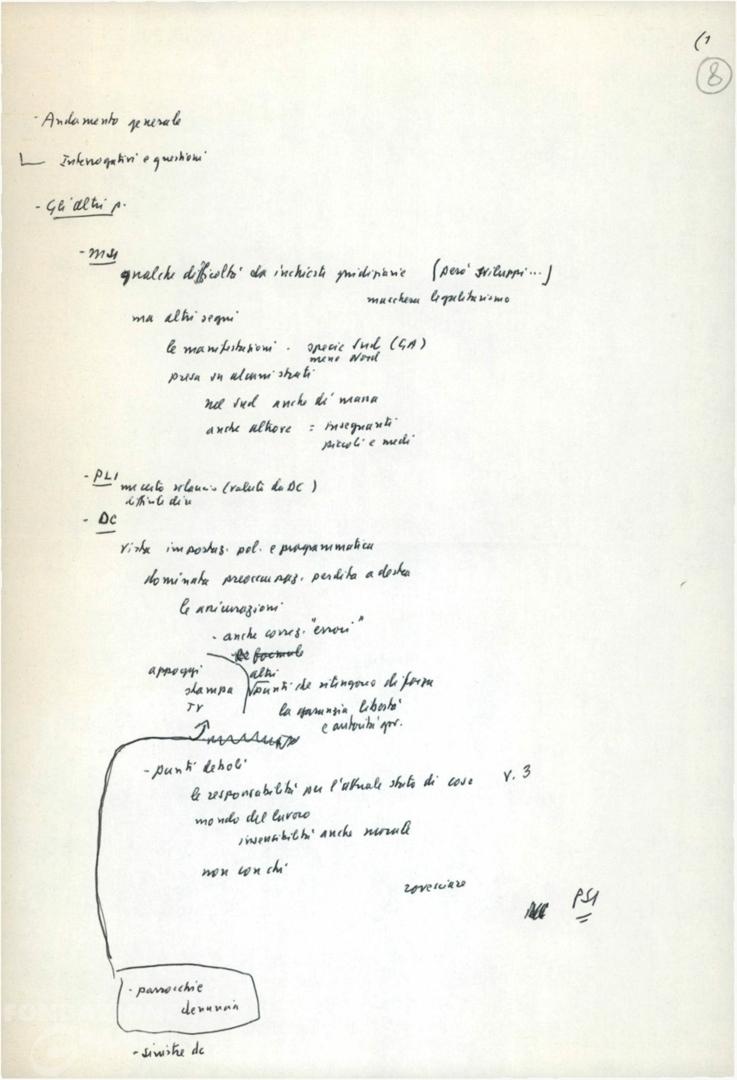 (1
8
- Andamento generale
Interrogativi e questioni
- Gli altri p.
- MSI
qualche difficoltà da inchieste giudiziarie (però sviluppi...)
maschera legalitarismo
ma altri segni
le manifestazioni - specie Sud (GA)
meno Nord
presa su alcuni strati
nel Sud anche di massa
anche altrove = insegnanti
piccoli e medi
- PLI
rilancio (voluto da DC)
- DC
vista impostaz. pol. e programmatica
dominata preoccupaz. perdita a destra
le assicurazioni
- anche correz. "errori"
le formule
appoggi
altri
stampa
punti che ritengono di forza
TV
la garanzia libertà
e autorità gov.
- punti deboli
le responsabilità per l'attuale stato di cose V. 3
mondo del lavoro
insensibilità anche morale
non con chi
rovesciare
PSI
- parrocchie
denuncia
- sinistre dc